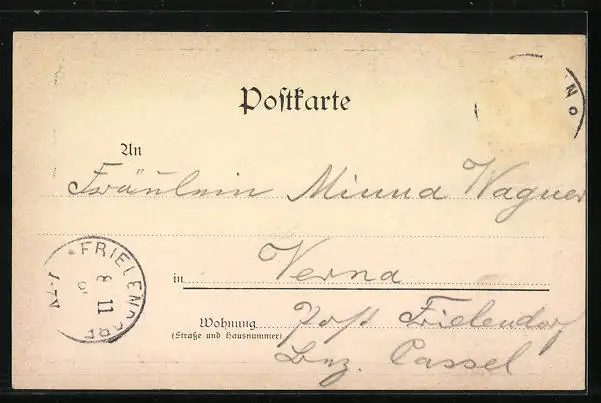 Postkarte
An
Fräulein Minna Wagner
Verna
in
Wohnung
(Straße und Hausnummer)
Post Frielendorf
Bez. Cassel
FRIELENDORF
8 11
No